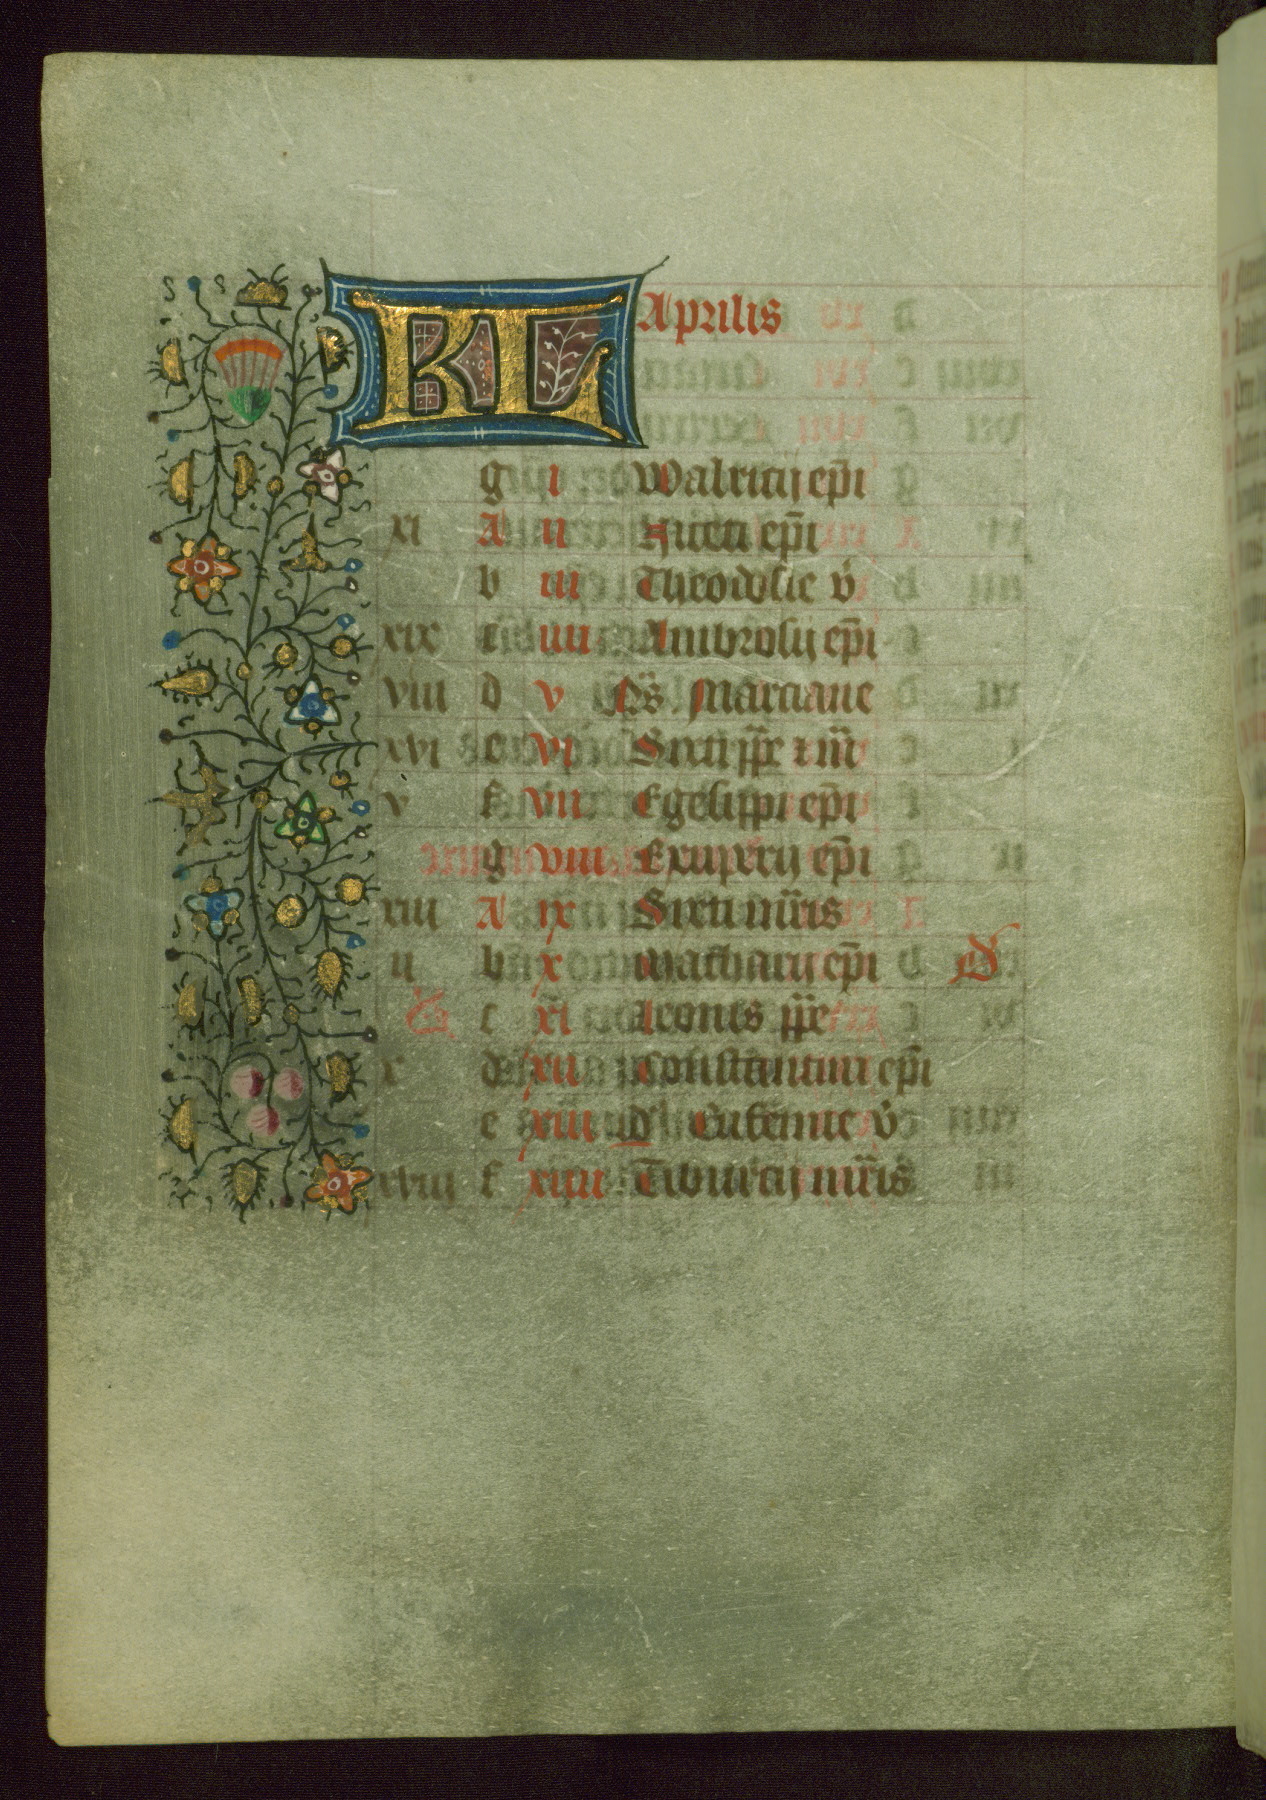 KL Aprilis
g i Walrici ep̄i
xi A ii Niceti ep̄i
b iii Theodosie v̓
xix c iiii Ambrosij ep̄i
viii d v Marciane
xvi e vi Sixti pp̄e
v f vii Egesippi ep̄i
g viii Exuperij ep̄i
xiii A ix Sixti mr̄is
ii b x Macharij ep̄i
c xi Leonis pp̄e
x d xii Constantini ep̄i
e xiii Eufemie v̓
xviii f xiiii Tiburcij mr̄is